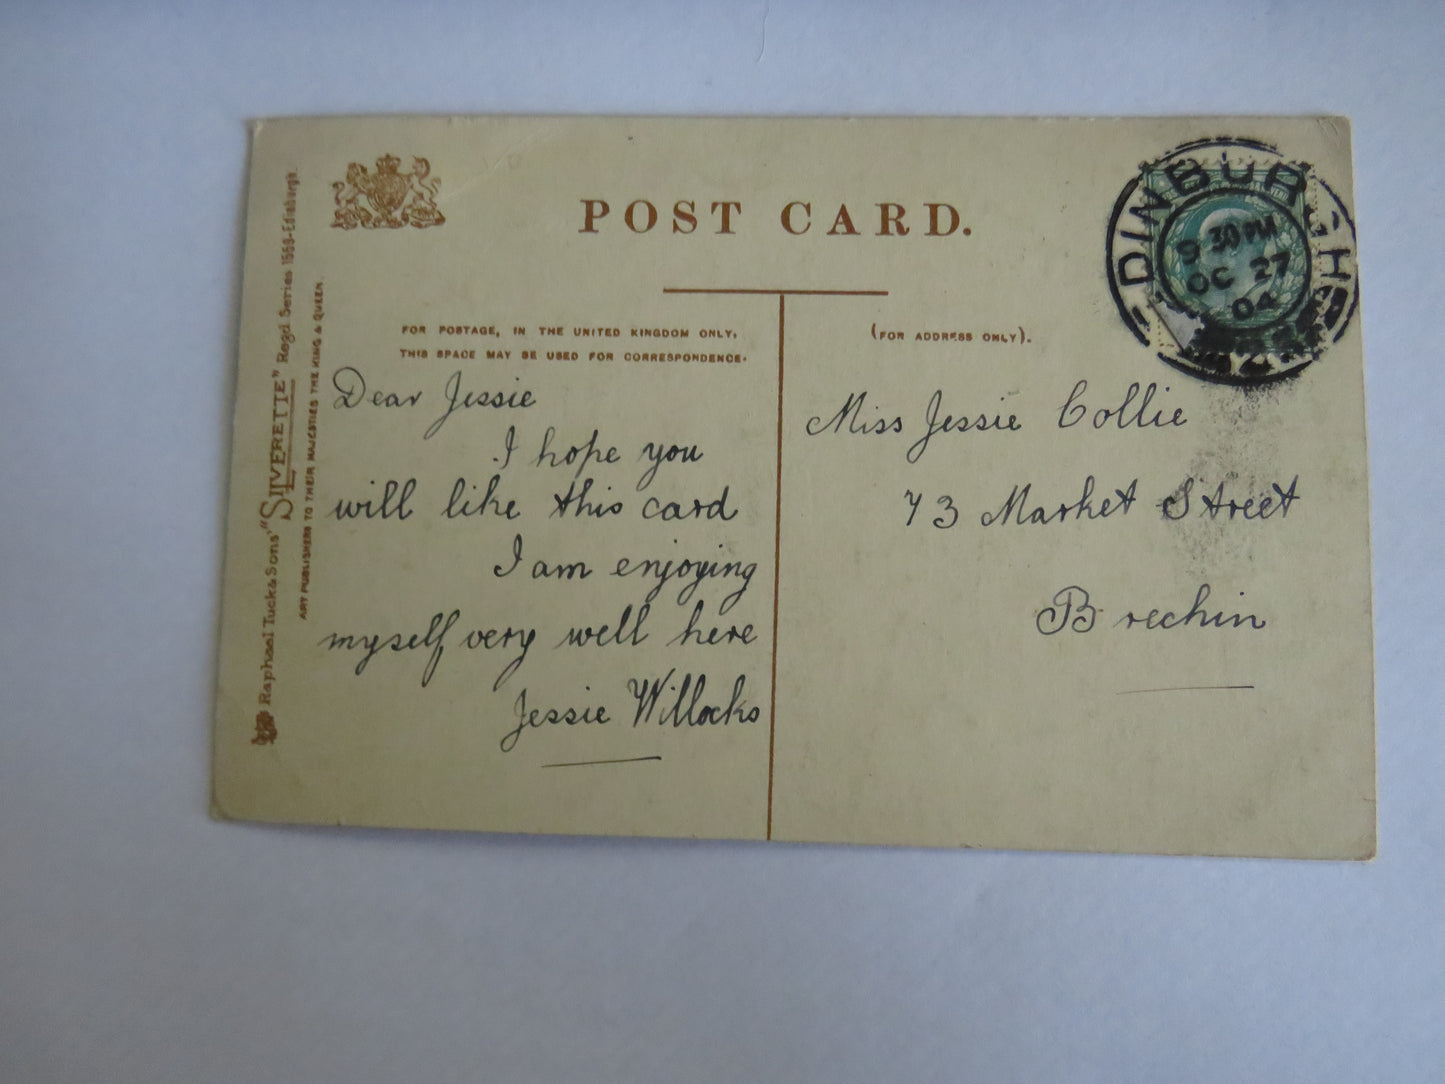 POST CARD.
EDINBURGH
9 30 PM
OC 27
04
FOR POSTAGE, IN THE UNITED KINGDOM ONLY,
THIS SPACE MAY BE USED FOR CORRESPONDENCE.
(FOR ADDRESS ONLY).
Raphael Tuck & Sons' "SILVERETTE" Regd Series 1559-Edinburgh.
ART PUBLISHERS TO THEIR MAJESTIES THE KING & QUEEN.
Dear Jessie
I hope you
will like this card
I am enjoying
myself very well here
Jessie Willocks
Miss Jessie Collie
73 Market Street
Brechin